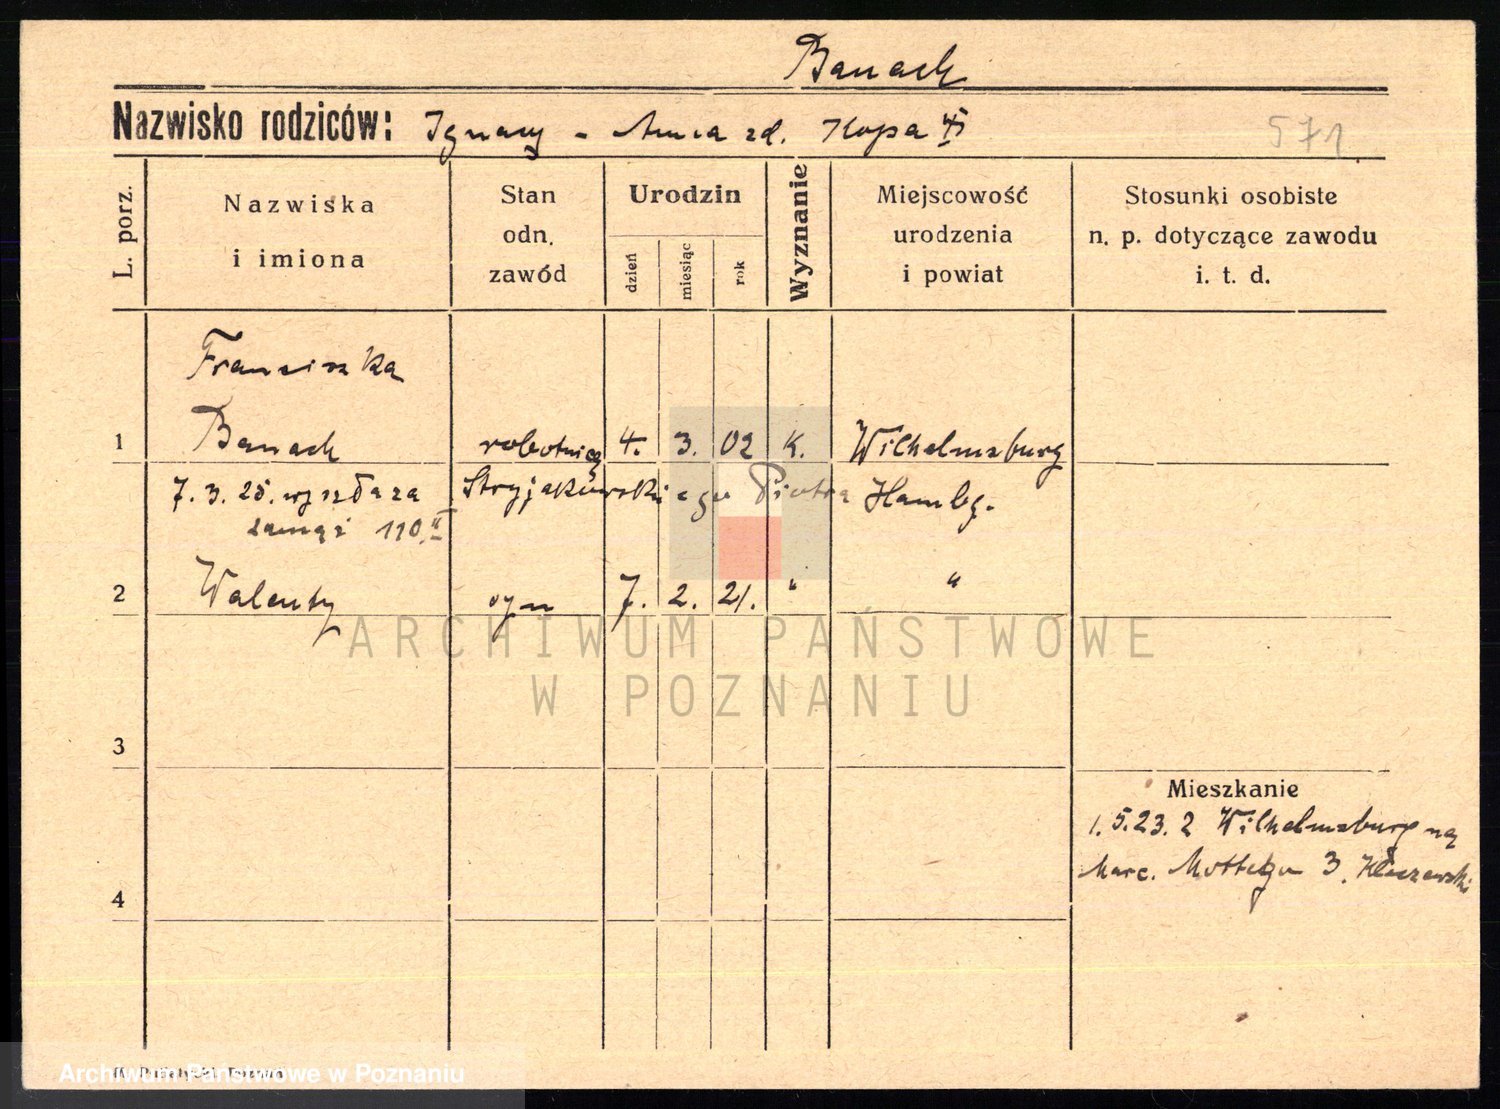 Banach
Nazwisko rodziców: Ignacy - Anna zd. Kopa
571
L. porz.
Nazwiska
i imiona
Stan
odn.
zawód
Urodzin
dzień
miesiąc
rok
Wyznanie
Miejscowość
urodzenia
i powiat
Stosunki osobiste
n. p. dotyczące zawodu
i. t. d.
Franciszka
1 Banach robotnica 4. 3. 02 K. Wilhelmsburg
7. 3. 25. wyszła za Stryjakowskiego Piotra Hambg.
zamąż 110. II
2 Walenty syn 7. 2. 21. " "
ARCHIWUM PAŃSTWOWE
W POZNANIU
3
Mieszkanie
1. 5. 23. z Wilhelmsburg na
Marc. Mottego 3.
4
Archiwum Państwowe w Poznaniu